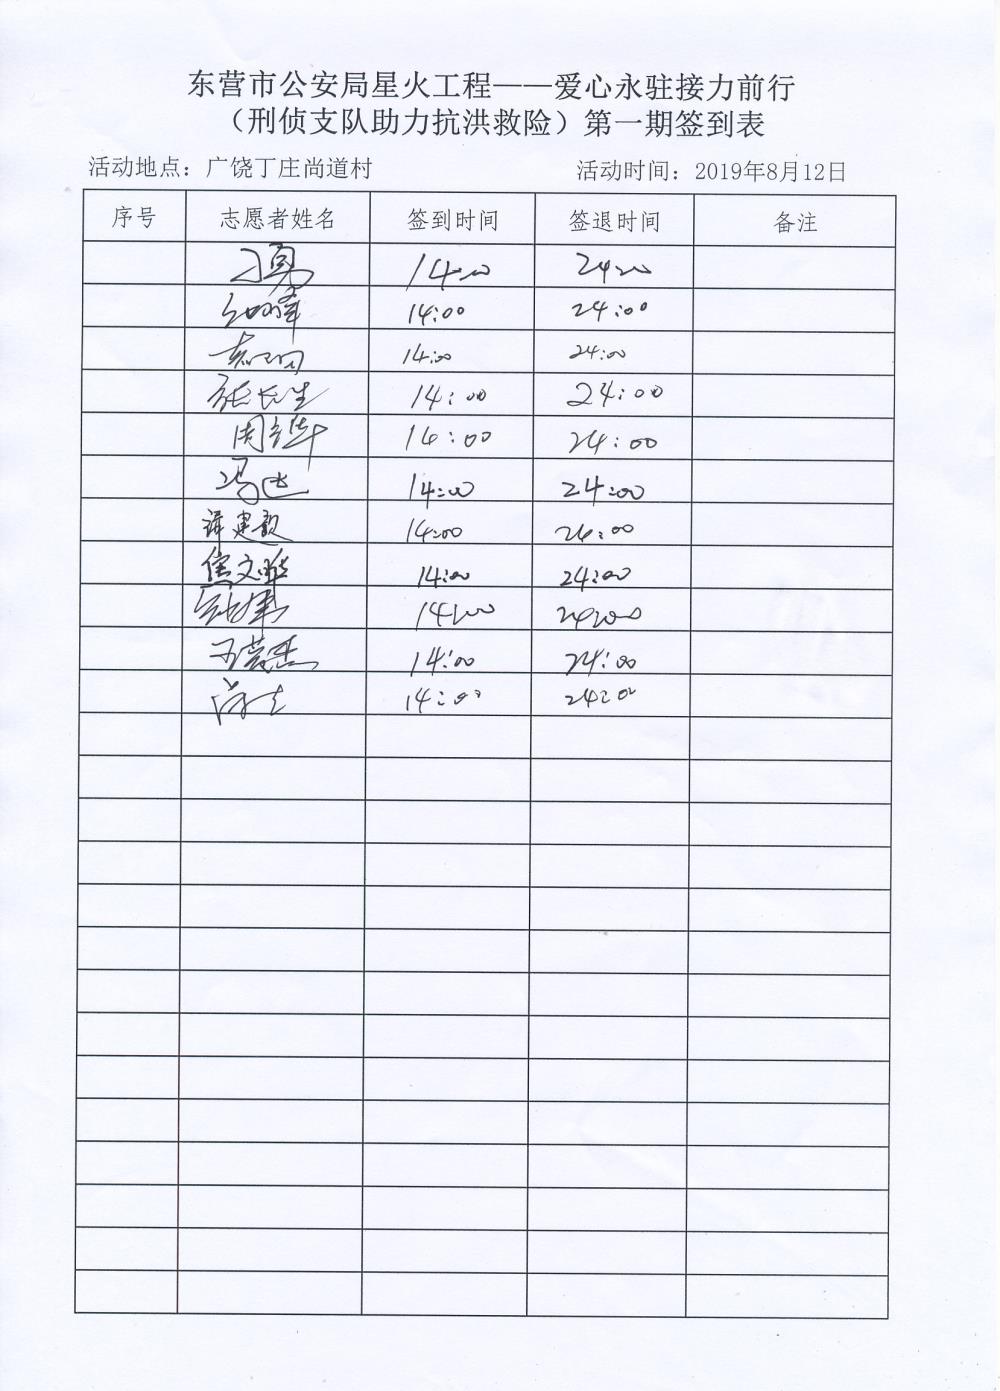 东营市公安局星火工程——爱心永驻接力前行
（刑侦支队助力抗洪救险）第一期签到表
活动地点：广饶丁庄尚道村 活动时间：2019年8月12日
序号 志愿者姓名 签到时间 签退时间 备注
丁勇 14:00 24:00
14:00 24:00
14:00 24:00
张长生 14:00 24:00
周 14:00 24:00
冯 14:00 24:00
建毅 14:00 24:00
焦文 14:00 24:00
14:00 24:00
王 杰 14:00 24:00
14:00 24:00